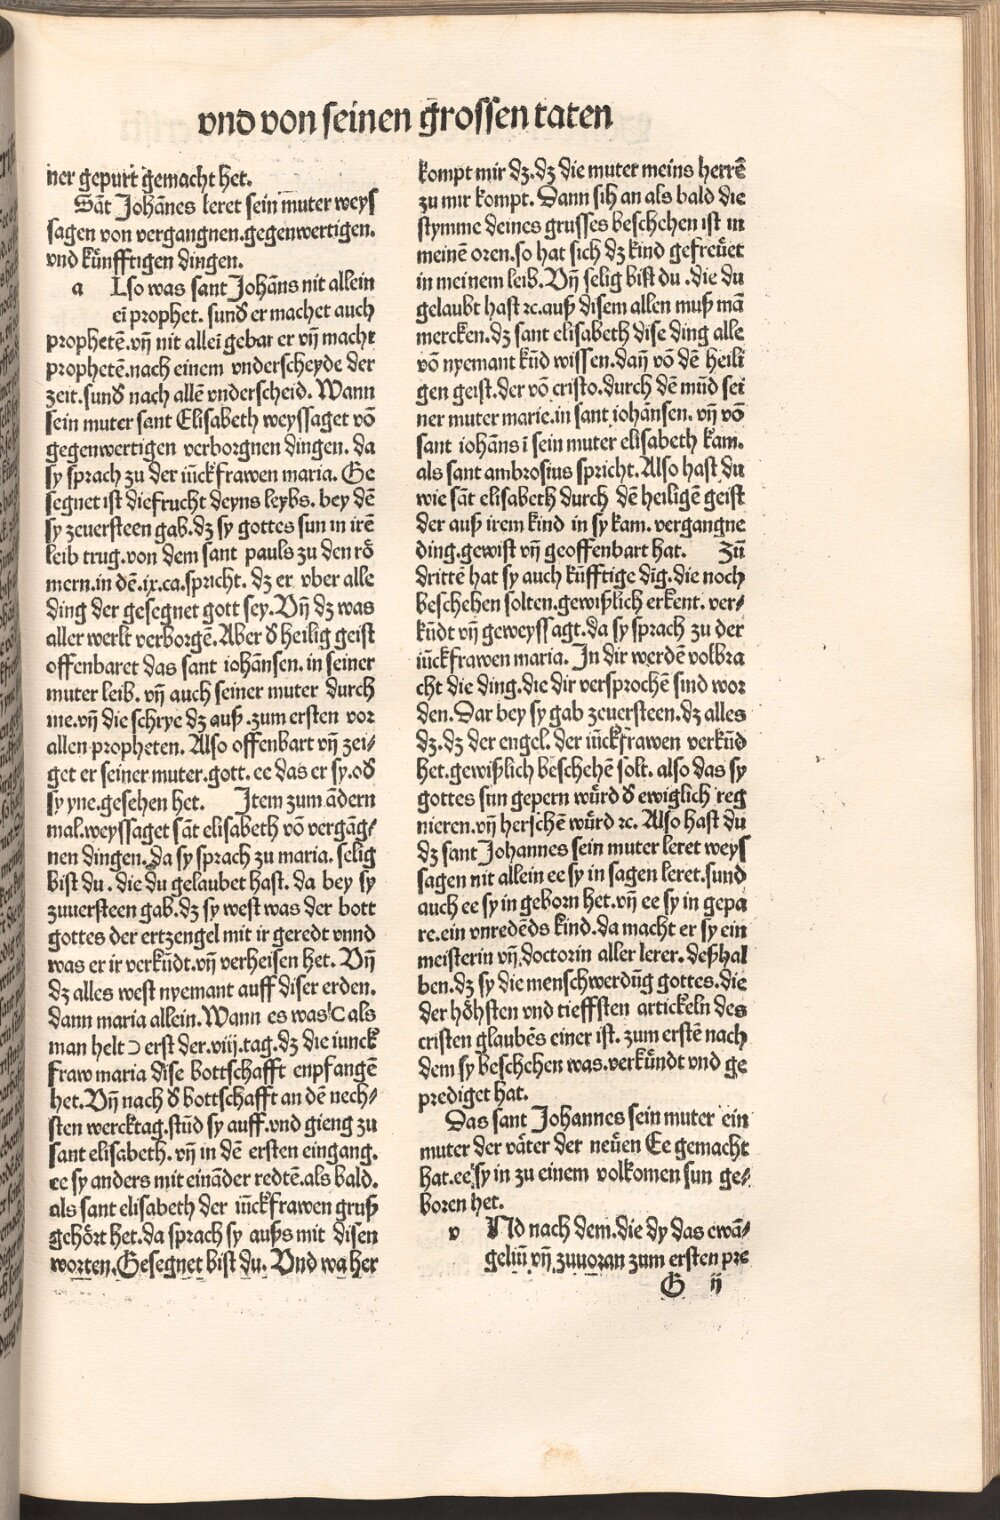 vnd von seinen grossen taten
ner gepurt gemacht het.
Sãt Johãnes leret sein muter weys
sagen von vergangnen.gegenwertigen.
vnd kũnfftigen dingen.
a Lso was sant Johãns nit allein
eĩ prophet. sunđ er machet auch
prophetẽ.vñ nit alleĩ gebar er vñ macht
prophetẽ.nach einem vnderscheyde der
zeit.sunđ nach allẽ vnderscheid. Wann
sein muter sant Elisabeth weyssaget võ
gegenwertigen verborgnen dingen. da
sy sprach zu der iũckfrawen maria. Ge
segnet ist die frucht deyns leybs. bey dẽ
sy zeuersteen gab.dz sy gottes sun in irẽ
leib trug.von dem sant pauls zu den rö
mern.in dẽ.ix.ca.spricht. dz er vber alle
ding der gesegnet gott sey. Vñ dz was
aller werlt verborgẽ. Aber đ heilig geist
offenbaret das sant iohãnsen. in seiner
muter leib. vñ auch seiner muter durch
ine.vñ die schrye dz auß .zum ersten vor
allen propheten. Also offenbart vñ zei⸗
get er seiner muter.gott. ee das er sy.ođ
sy yne.gesehen het. Item zum ãdern
mal.weyssaget sãt elisabeth võ vergãg⸗
nen dingen. Da sy sprach zu maria. selig
bist du . die du gelaubet hast. da bey sy
zuuersteen gab.dz sy west was der bott
gottes der ertzengel mit ir geredt vnnd
was er ir verkũdt.vñ verheisen het. Vñ
dz alles west nyemant auff diser erden.
dann maria allein. Wann es was C als
man helt Ɔ erst der.viij.tag.dz die iunck
fraw maria dise bottschafft enpfangẽ
het. Vñ nach đ bottschafft an dẽ nech⸗
sten wercktag.stũd sy auff.vnd gieng zu
sant elisabeth. vñ in dẽ ersten eingang.
ee sy anders mit einãder redtẽ.als bald.
als sant elisabeth der iũckfrawen gruß
gehört het.da sprach sy außs mit disen
worten. Gesegnet bist du. Vnd wa her
kompt mir dz.dz die muter meins herrẽ
zu mir kompt. Dann sih an als bald die
stymme deines grusses beschehen ist in
meinẽ oren.so hat sich dz kind gefreůet
in meinem leib. Vñ selig bist du .die du
gelaubt hast ꝛc.auß disem allen muß mã
mercken.dz sant elisabeth dise ding alle
võ nyemant kũd wissen.dañ võ dẽ heili
gen geist.der võ cristo.durch dẽ mũd sei
ner muter marie.in sant iohãnsen. vñ võ
sant iohãns ĩ sein muter elisabeth kam.
als sant ambrosius spricht. Also hast du
wie sãt elisabeth durch dẽ heiligẽ geist
der auß irem kind in sy kam. vergangne
ding.gewist vñ geoffenbart hat. Zũ
drittẽ hat sy auch kũfftige dĩg.die noch
beschehen solten.gewißlich erkent. ver⸗
kũdt vñ geweyssagt.da sy sprach zu der
iũckfrawen maria. In dir werdẽ volbra
cht die ding.die dir versprochẽ sind wor
den. Dar bey sy gab zeuersteen.dz alles
dz.dz der engel. der iũckfrawen verkũd
het.gewißlich beschehẽ solt. also das sy
gottes sun gepern wůrd đ ewiglich reg
nieren.vñ herschẽ wůrd ꝛc. Also hast du
dz sant Johannes sein muter leret weys
sagen nit allein ee sy in sagen leret.sund
auch ee sy in geborn het.vñ ee sy in gepa
re.ein vnredẽds kind.da macht er sy ein
meisterin vñ doctorin aller lerer. deßhal
ben.dz sy die menschwerdũg gottes.die
der höhsten vnd tieffsten artickeln des
cristen glaubẽs einer ist. zum erstẽ nach
dem sy beschehen was.verkůndt vnd ge
prediget hat.
Das sant Johannes sein muter ein
muter der väter der neůen Ee gemacht
hat.ee sy in zu einem volkomen sun ge⸗
boren het.
v Nd nach dem.die dy das ewã⸗
geliũ vñ zuuoran zum ersten pre
G ij